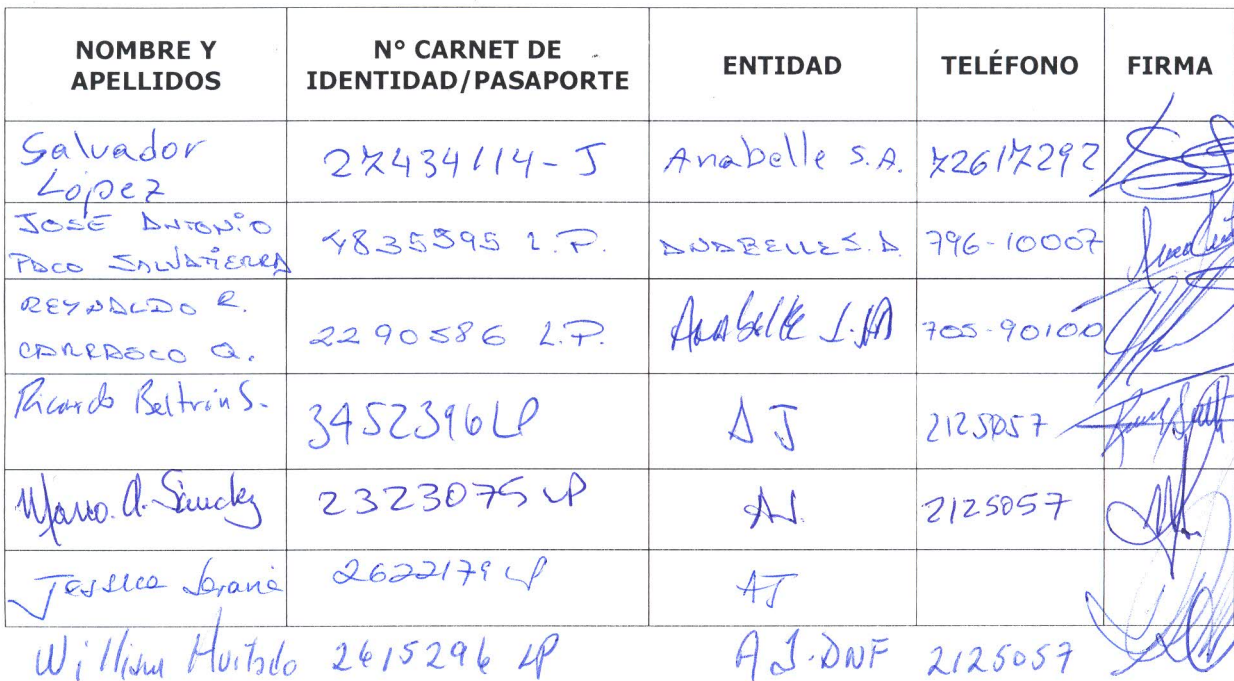 NOMBRE Y APELLIDOS
N° CARNET DE IDENTIDAD/PASAPORTE
ENTIDAD
TELÉFONO
FIRMA
Salvador López
27434114-J
Anabelle S.A.
72617292
JOSÉ ANTONIO PACO SALVATIERRA
4835595 L.P.
ANABELLE S.A
796-10007
REYNALDO R. CARRASCO Q.
2290586 L.P.
Anabelle S.A
705-90100
Ricardo Beltrán S.
3452396 LP
AJ
2125057
Mario A. Sánchez
2323075 LP
AJ.
2125057
Jessica
2622179 LP
AJ
William Hurtado
2615296 LP
AJ-DNF
2125057